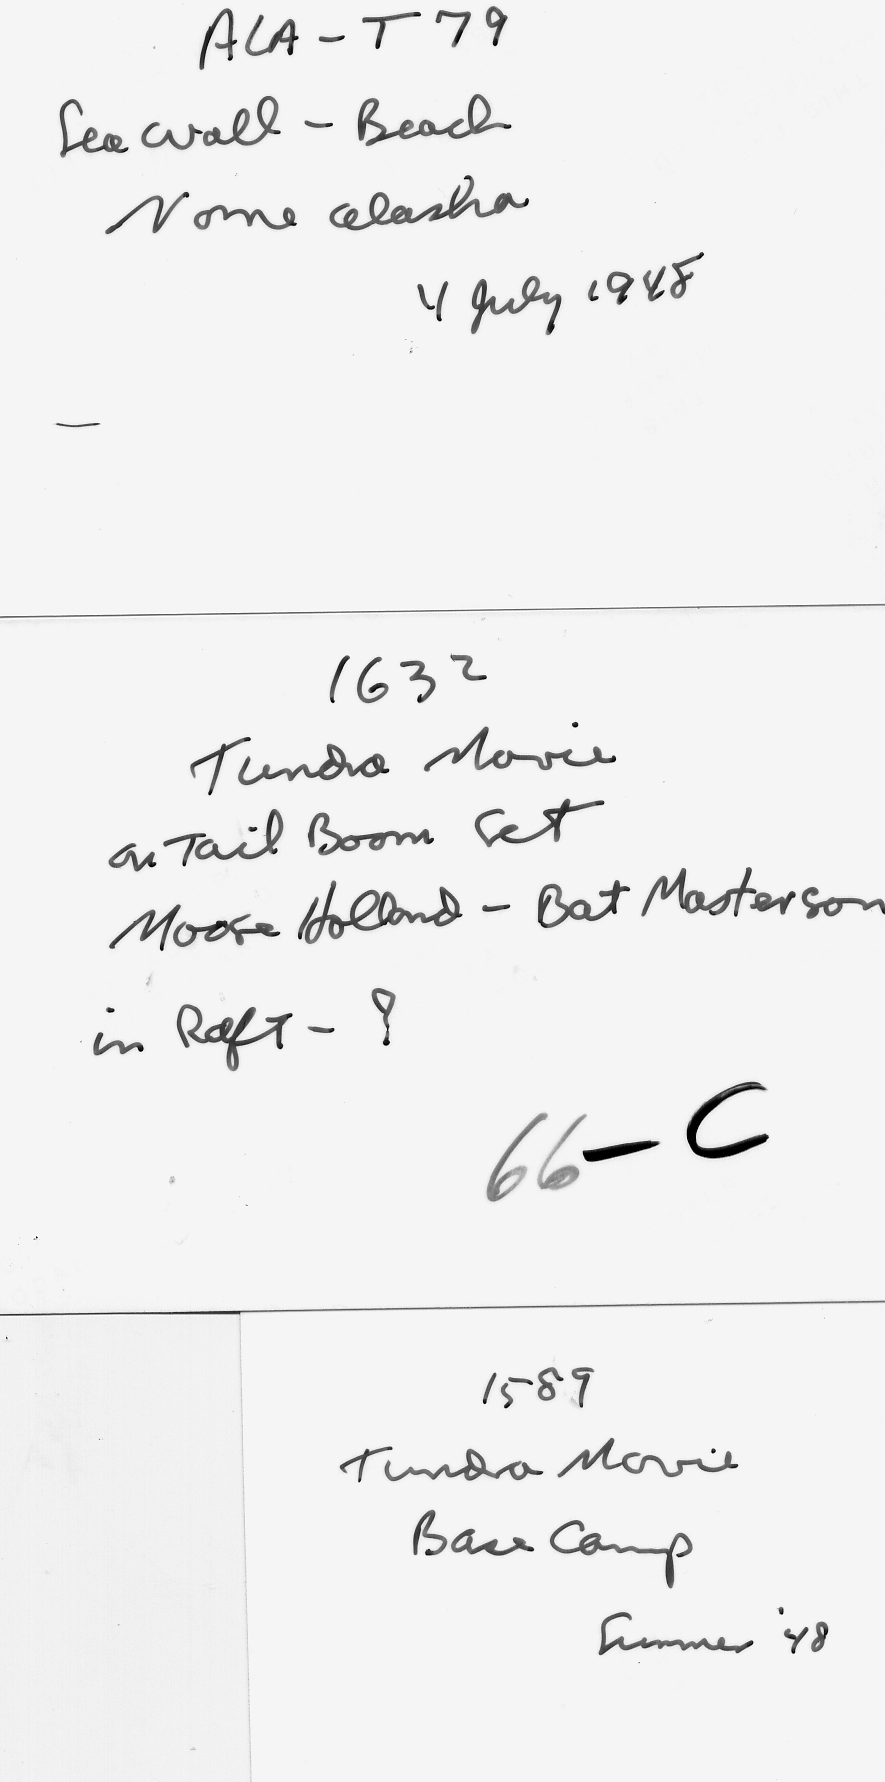 ALA - T 79
Sea Wall - Beach
Nome Alaska
4 July 1948
1632
Tundra Movie
on Tail Boom Set
Moose Holland - Bat Masterson
in Raft - ?
66 - C
1589
Tundra Movie
Base Camp
Summer '48